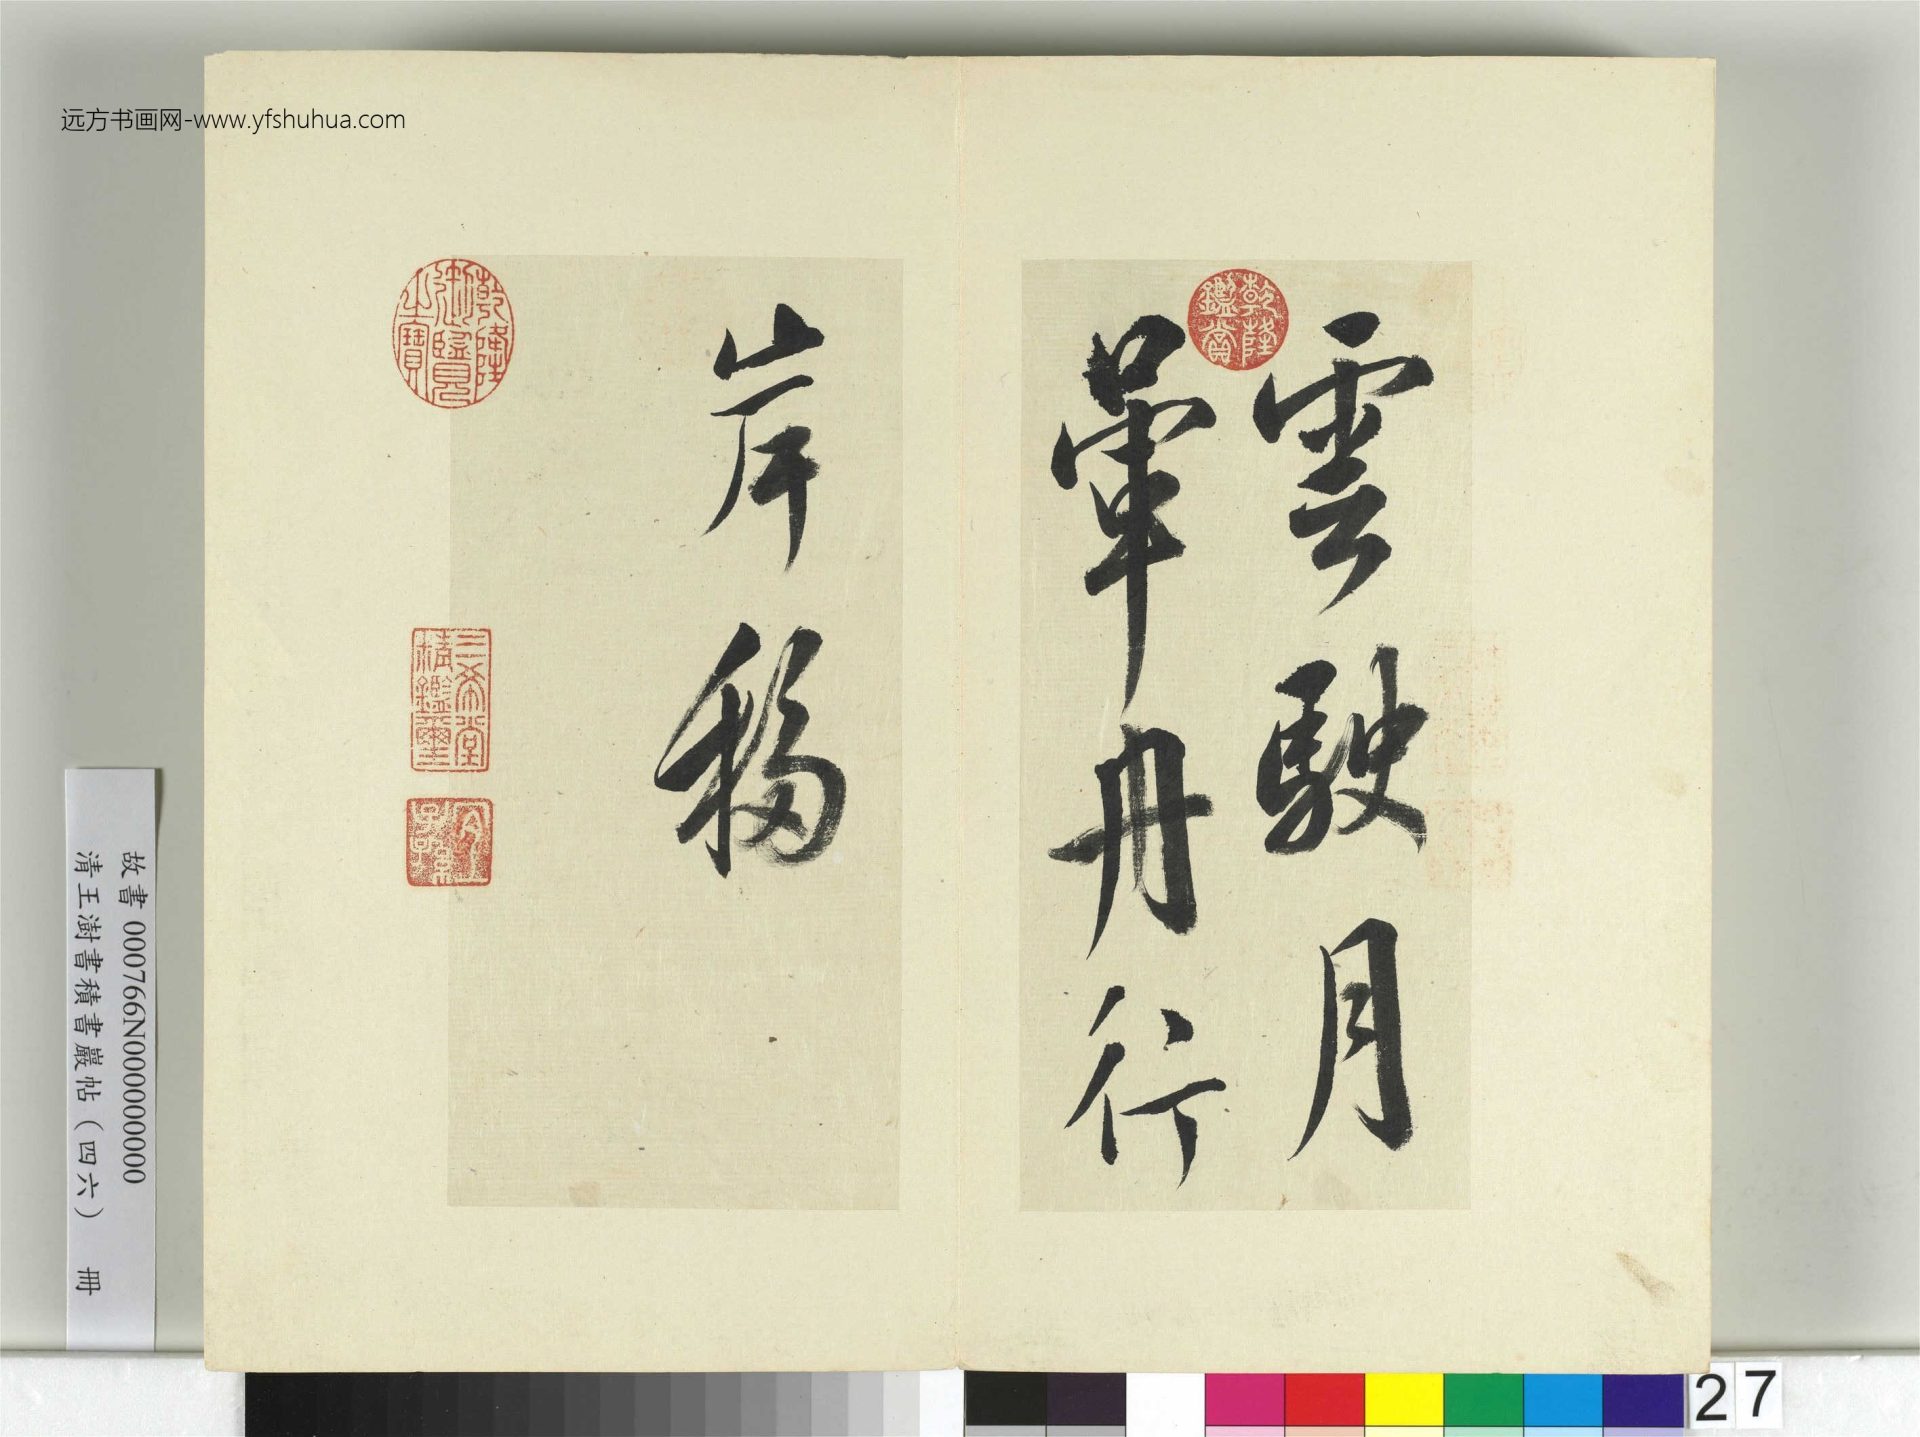 远方书画网-www.yfshuhua.com
雲駛月
暈舟行
岸移
乾隆鑑賞
乾隆御覽之寶
三希堂精鑑璽
宜子孫
故書 000766N000000000
清王澍書積書巖帖(四六) 冊
27